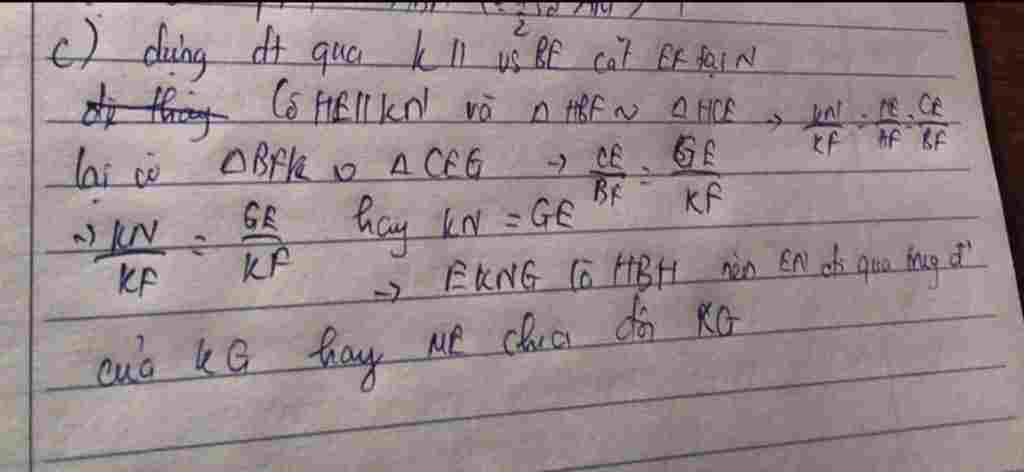 c) dựng đt qua k // vs BE cắt EF tại N
Có HE // KN và Δ HBF ~ Δ HCE → KN/KF = HE/HF = CE/BF
lại có Δ BFK ~ Δ CEG → CE/BF = GE/KF
~> KN/KF = GE/KF hay KN = GE
→ EKNG là HBH nên EN đi qua trung đ'
của KG hay NE chia đôi KG